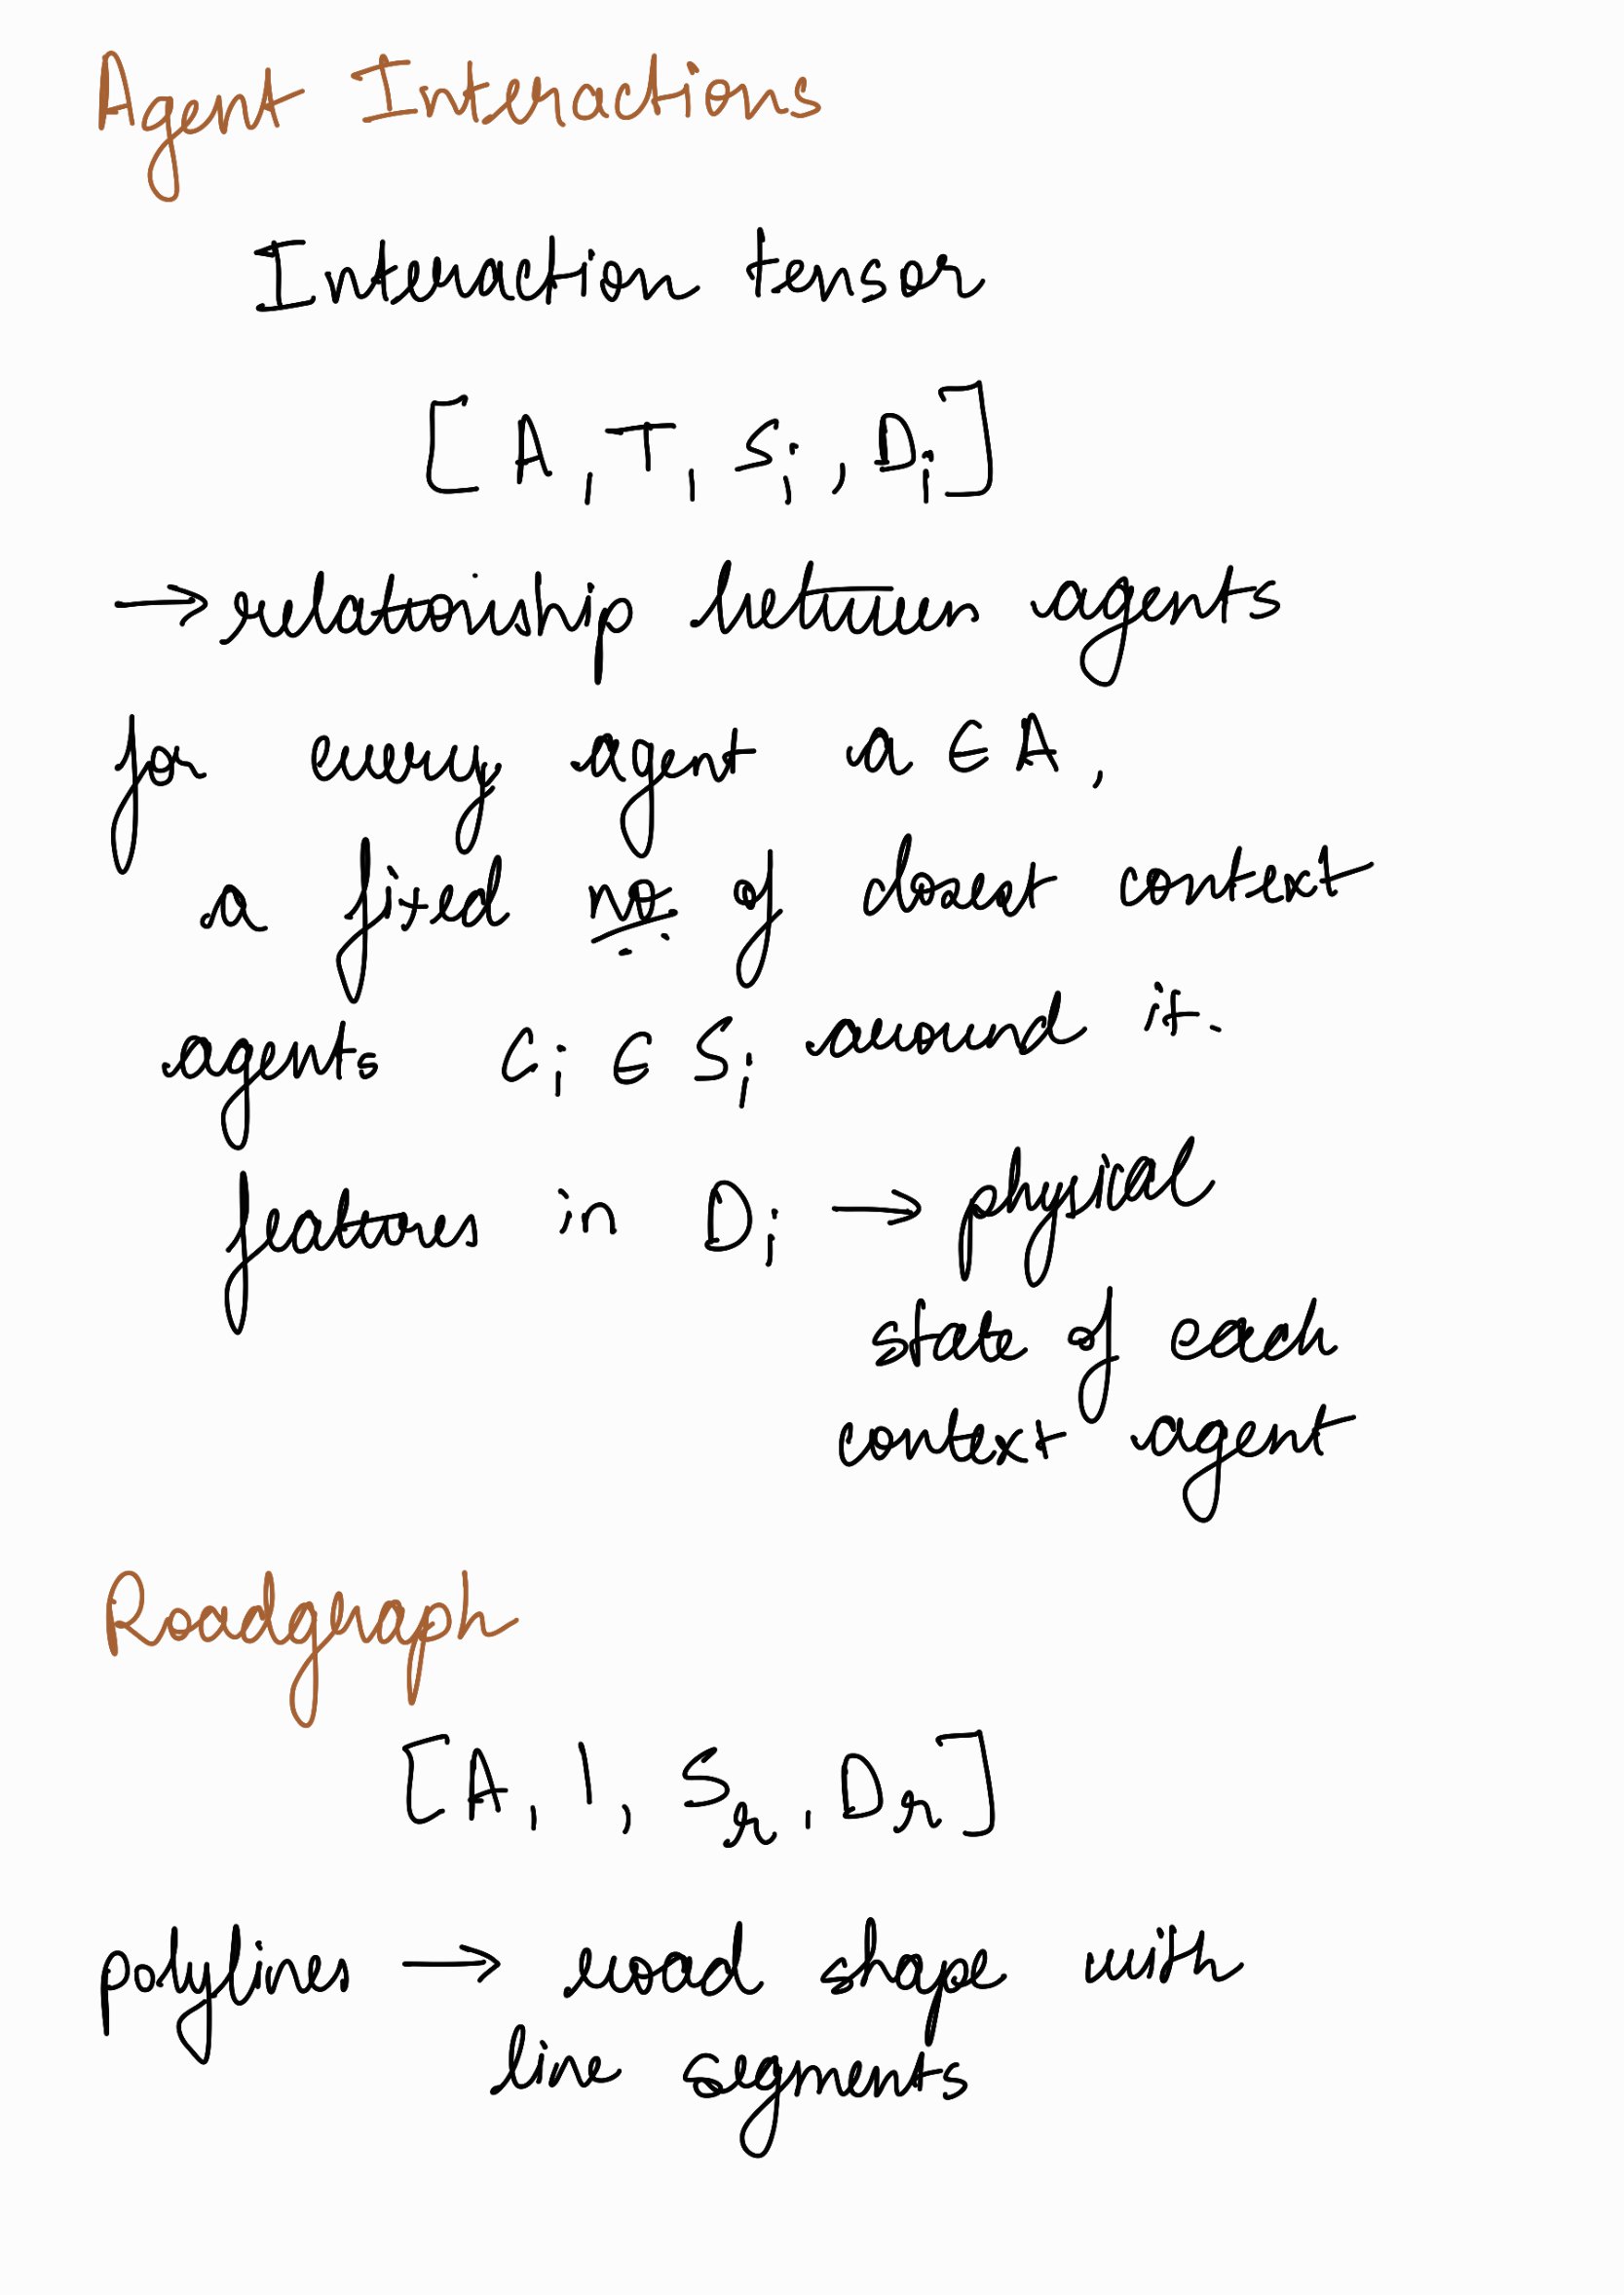 Agent Interactions
Interaction tensor
[A, T, Si, Di]
→ relationship between agents
for every agent a ∈ A,
a fixed no of closest context
agents Ci ∈ Si around it.
features in Di → physical
state of each
context agent
Roadgraph
[A, 1, Sr, Dr]
polylines → road shape with
line segments